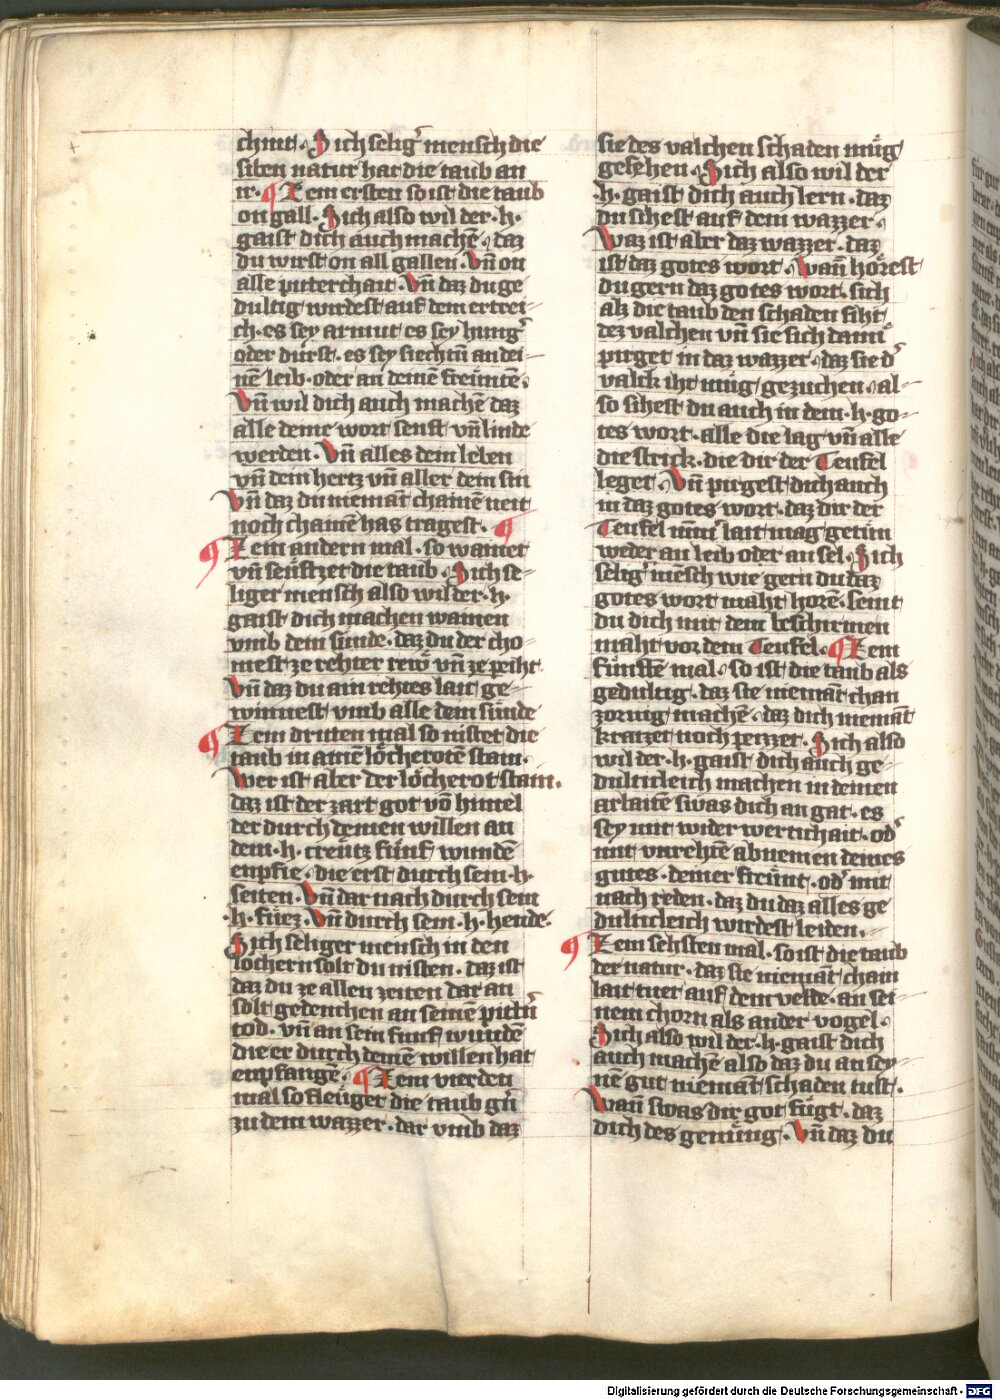 chint. Sich selig᷒ mensch die
siben natur hat die taub an
ir. ¶ Zem ersten so ist die taub
on gall. Sich also wil der .h.
gaist dich auch machē. daz
du wirst on all gallen. Vn̄ on
alle pitterchait. Vn̄ daz du ge
dultig wirdest auf dem ertrei-
ch. es sey armut es sey hung᷒
oder durst. es sey siechtū an dei-
nē leib. oder an deinē freūntē.
Vn̄ wil dich auch machē daz
alle deine wort senft vn̄ linde
werden. Vn̄ alles dein leben
vn̄ dein hertz vn̄ aller dein sin
Vn̄ daz du niemāt chainē neit
noch chainē has tragest. ¶
Zem andern mal. so wainet
vn̄ seuftzet die taub. Sich se-
liger mensch also wil der .h.
gaist dich machen wainen
vmb dein sünde. daz du der cho
mest ze rehter rew vn̄ ze peiht
Vn̄ daz du ain rehtes lait ge-
winnest vmb alle dein sünde
¶ Zem dritten mal so nistet die
taub in ainē löcherotē stain.
Wer ist aber der löcherot stain.
daz ist der zart got vō himel
der durch deinen willen an
dem .h. creutz fünf wundē
enpfie. die erst durch sein .h.
seiten. Vn̄ dar nach durch sein
.h. füez. Vn̄ durch sein .h. hende.
Sich seliger mensch in den
löchern solt du nisten. daz ist
daz du ze allen zeiten dar an
solt gedenchen an seinē pittn̄
tod. vn̄ an sein fünf wundē
die er durch deinē willen hat
enpfangē. ¶ Zem vierden
mal so fleuget die taub gn̄
zu dem wazzer. dar vmb daz
sie des valchen schaden müg
gesehen. Sich also wil der
.h. gaist dich auch lern. daz
du sihest auf dem wazzer.
Waz ist aber daz wazzer. daz
ist daz gotes wort. Wan̄ hörest
du gern daz gotes wort. sich
alz die taub den schaden siht
dez valchen vn̄ sie sich dann
pirget in daz wazzer. daz sie d᷒
valck iht müg gezuchen. al-
so sihest du auch in dem .h. go-
tes wort. alle die lag vn̄ alle
die strick. die dir der Teufel
leget. Vn̄ pirgest dich auch
in daz gotes wort. daz dir der
Teufel nim̄ lait mag getūn
weder an leib oder an sel. Sich
selig᷒ mēsch wie gern du daz
gotes wort maht horē. seint
du dich mit dem beschirmen
maht vor dem Teufel. ¶ Zem
fünftē mal. so ist die taub als
gedultig. daz sie niemāt chan
zornig machē. daz dich niemāt
kratzet noch peizzet. Sich also
wil der .h. gaist dich auch ge-
dulticleich machen in deinen
arbaitē swas dich an gat. es
sey mit wider wertichait. od᷒
mit vnrehtē abnemen deines
gutes. deiner freunt. od᷒ mit
nach reden. daz du daz alles ge
dulticleich wirdest leiden.
¶ Zem sehsten mal. so ist die taub
der natur. daz sie niemāt chain
lait tuet auf dem velde. an sei-
nem chorn als ander vogel.
Sich also wil der .h. gaist dich
auch machē also daz du an sey-
nē gut niemāt schaden tust.
Wan̄ swas dir got fügt. daz
dich des genüng. Vn̄ daz du
Digitalisierung gefördert durch die Deutsche Forschungsgemeinschaft - DFG